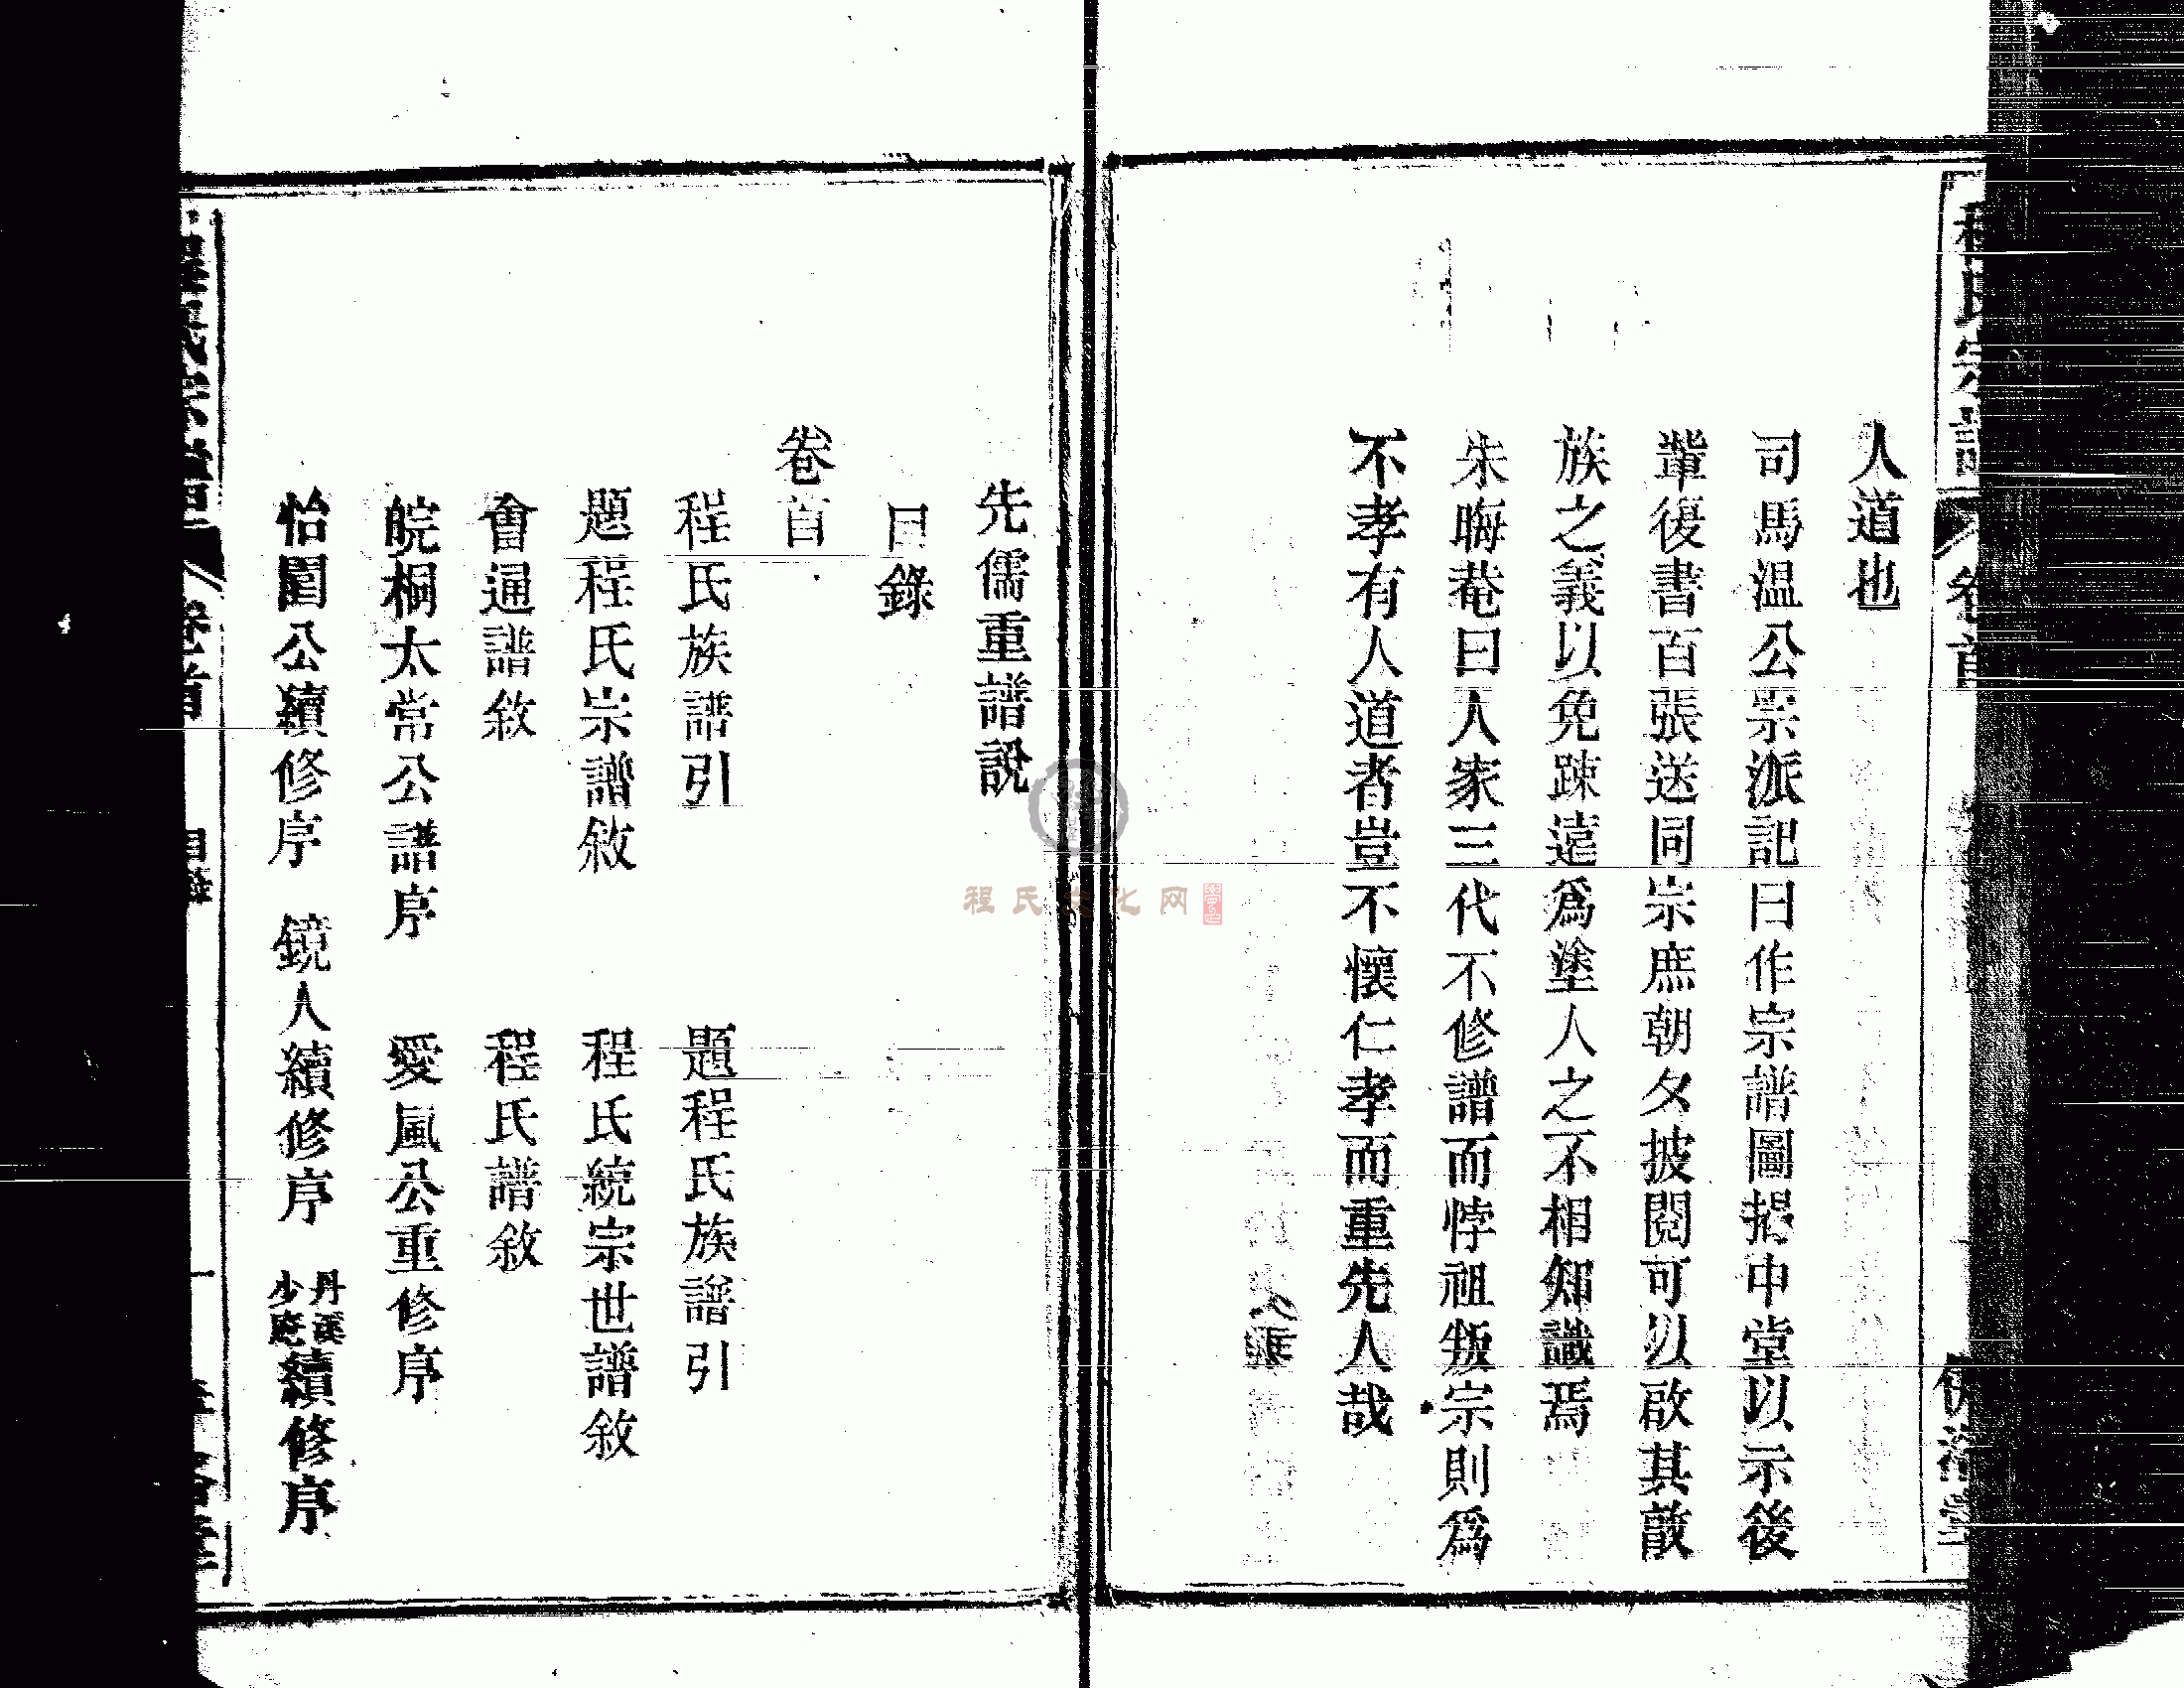 人道也
司馬温公宗派記曰作宗譜圖揭中堂以示後
輩復書百張送同宗庶朝夕披閱可以啟其散
族之義以免踈遠爲塗人之不相知識焉
朱晦菴曰人家三代不修譜而悖祖叛宗則爲
不孝有人道者豈不懷仁孝而重先人哉
卷首
先儒重譜說
目錄
卷首
程氏族譜引 題程氏族譜引
題程氏宗譜敘 程氏統宗世譜敘
會通譜敘 程氏譜敘
皖桐太常公譜序 愛風公重修序
怡閨公續修序 鏡人續修序 丹溪少庭續修序
卷首 目錄 一
程氏文化网